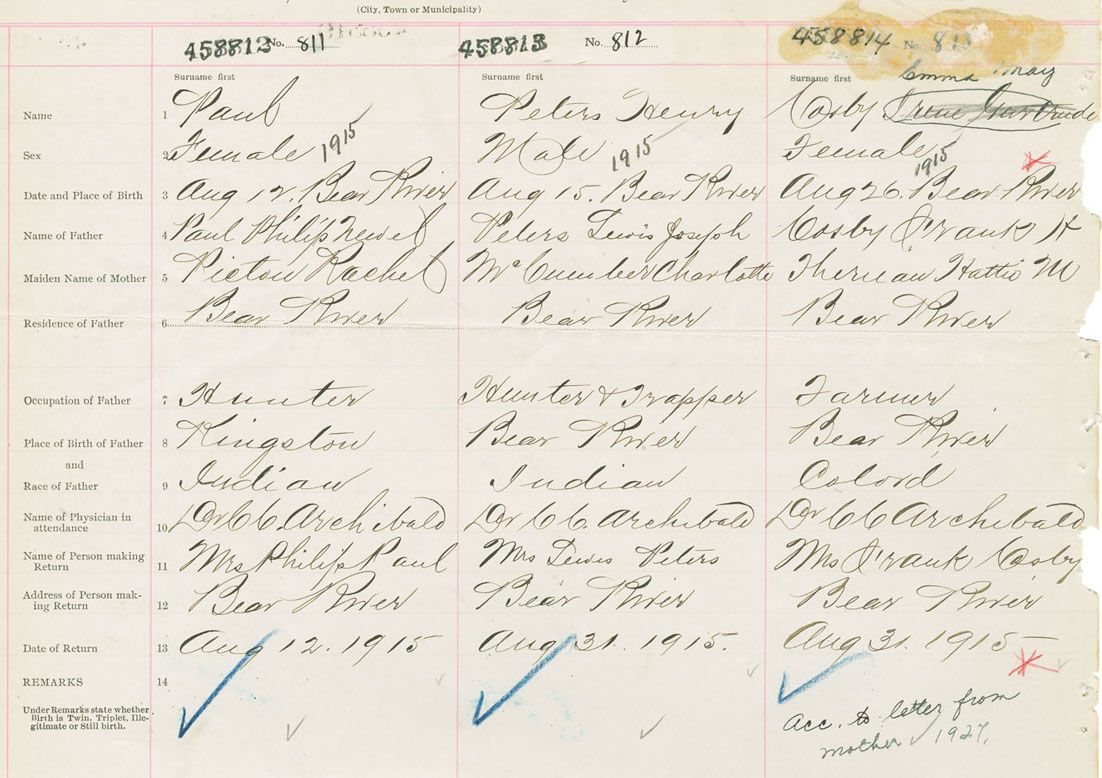 (City, Town or Municipality)
458812 No. 811 458813 No. 812 458814 No.
Surname first Surname first Surname first Emma May
Name 1 Paul Peters Henry Cosby Irene Gertrude
Sex 2 Female 1915 Male 1915 Female 1915
Date and Place of Birth 3 Aug 12. Bear River Aug 15. Bear River Aug 26. Bear River
Name of Father 4 Paul Philip Newel Peters Lewis Joseph Cosby Frank H
Maiden Name of Mother 5 Picton Rachel McCumber Charlotte Hattie M
Residence of Father 6 Bear River Bear River Bear River
Occupation of Father 7 Hunter Hunter & Trapper Farmer
Place of Birth of Father 8 Kingston Bear River Bear River
and
Race of Father 9 Indian Indian Colord
Name of Physician in
attendance 10 Dr Archibald Dr Archibald Dr Archibald
Name of Person making
Return 11 Mrs Philip Paul Mrs Lewis Peters Mrs Frank Cosby
Address of Person mak-
ing Return 12 Bear River Bear River Bear River
Date of Return 13 Aug 12. 1915 Aug 31. 1915. Aug 31. 1915
REMARKS 14
Under Remarks state whether
Birth is Twin, Triplet, Ille-
gitimate or Still birth.
Acc. to letter from
mother 1927.